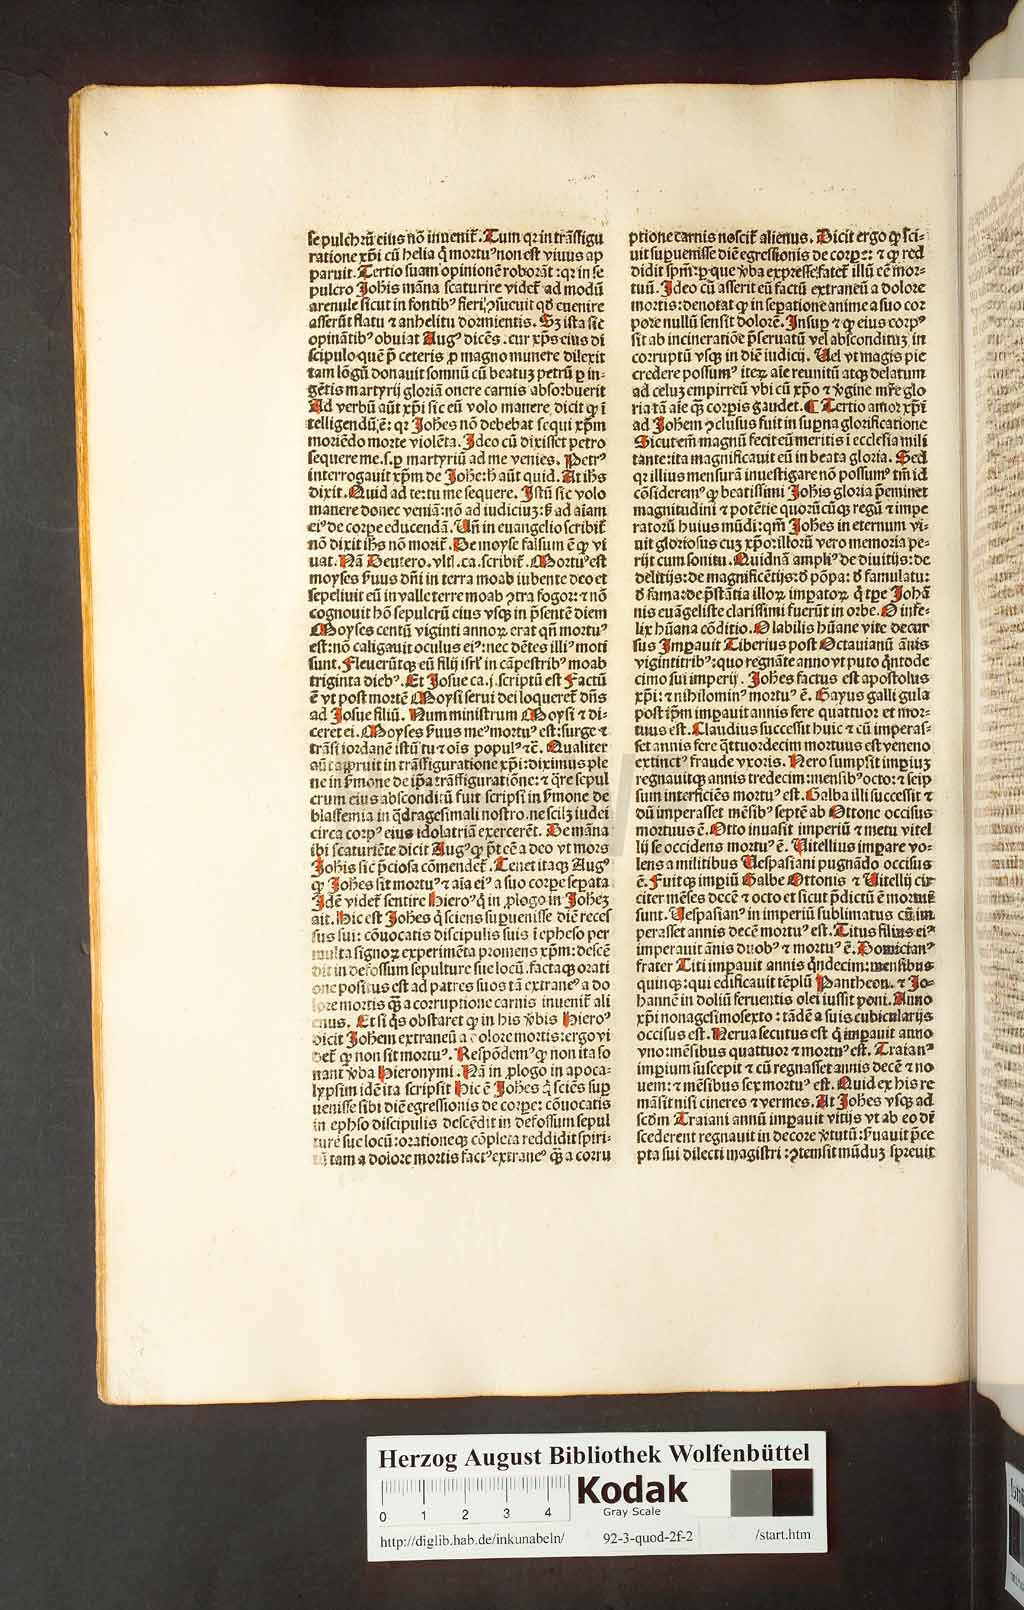 sepulchrũ eius nõ inuenit᷑. Tum qr in trãsfigu
ratione xp̃i cũ helia q̃ mortuꝰ non est viuus ap
paruit. Tertio suam opinionẽ roborãt: qr in se
pulcro Joh̃is mãna scaturire videt᷑ ad modũ
arenule sicut in fontibꝰ fieri ↄ̃sueuit qd̃ euenire
asserũt flatu ⁊ anhelitu dormientis. Sꝫ ista sic
opinãtibꝰ obuiat Augꝰ dicẽs. cur xp̃s eius di
scipulo quẽ p̃ ceteris ꝓ magno munere dilexit
tam lõgũ donauit somnũ cũ beatuꝫ petrũ ꝑ in-
gẽtis martyrij gloriã onere carnis absorbuerit
Ad verbũ aũt xp̃i sic eũ volo manere dicit qͥ ĩ
telligendũ ẽ: qr Joh̃es nõ debebat sequi xp̃m
moriẽdo morte violẽta. Jdeo cũ dixisset petro
sequere me. s. ꝑ martyriũ ad me venies. Petrꝰ
interrogauit xp̃m de Joh̃e: h̃ aũt quid. At ih̃s
dixit. Quid ad te: tu me sequere. Jstũ sic volo
manere donec veniã: nõ ad iudiciuꝫ: s̃ ad aĩam
eiꝰ de corꝑe educendã. Vñ in euangelio scribit᷑
nõ dixit ih̃s nõ morit᷑. De moyse falsum ẽ ꝙ vi
uat. Nã Deutero. vltĩ. ca. scribit᷑. Mortuꝰ est
moyses s̃uus dñi in terra moab iubente deo et
sepeliuit eũ in valle terre moab ↄtra fogor: ⁊ nõ
cognouit hõ sepulcrũ eius vsqꝫ in p̃sentẽ diem
Moyses centũ viginti annoꝝ erat qñ mortuꝰ
est: nõ caligauit oculus eiꝰ: nec dẽtes illiꝰ moti
sunt. Fleuerũtqꝫ eũ filij isrl̃ in cãpestribꝰ moab
triginta diebꝰ. Et Josue ca. j. scriptũ est Factũ
ẽ vt post mortẽ Moysi serui dei loqueret᷑ dñs
ad Josue filiũ. Num ministrum Moysi ⁊ di-
ceret ei. Moyses s̃uus meꝰ mortuꝰ est: surge ⁊
trãsi iordanẽ istũ tu ⁊ oĩs populꝰ ⁊c̃. Qualiter
aũt apparuit in trãsfiguratione xp̃i: diximus ple
ne in s̃mone de ip̃a trãsfiguratiõne: ⁊ q̃re sepul
crum eius absconditũ fuit scripsi in s̃mone de
blasfemia in q̃dragesimali nostro. ne scilꝫ iudei
circa corpꝰ eius idolatriã exercerẽt. De mãna
ibi scaturiẽte dicit Augꝰ ꝙ p̃t cẽ a deo vt mors
Joh̃is sic p̃ciosa cõmendet᷑. Tenet itaqꝫ Augꝰ
ꝙ Joh̃es sit mortuꝰ ⁊ aĩa eiꝰ a suo corꝑe seꝑata
Jdẽ videt᷑ sentire Hieroꝰ q̃ in ꝓlogo in Joh̃eꝫ
ait. Hic est Joh̃es q̃ sciens suꝑuenisse diẽ reces
sus sui: cõuocatis discipulis suis ĩ epheso per
multa signoꝝ experimẽta promens xp̃m: descẽ
dit in defossum sepulture sue locũ. factaqꝫ orati
one positus est ad patres suos tã extraneꝰ a do
lore mortis qͣ̃ a corruptione carnis inuenit᷑ ali
enus. Et si q̃s obstaret ꝙ in his v̓bis Hieroꝰ
dicit Joh̃em extraneũ a dolore mortis: ergo vi
det᷑ ꝙ non sit mortuꝰ. Respõdemꝰ ꝙ non ita so
nant v̓ba Hieronymi. Nã in ꝓlogo in apoca-
lypsim idẽ ita scripsit Hic ẽ Joh̃es q̃ sciẽs suꝑ
uenisse sibi diẽ egressionis de corꝑe: cõuocatis
in ephso discipulis descẽdit in defossium sepul
ture sue locũ: orationeqꝫ cõpleta reddidit spiri-
tũ tam a dolore mortis factꝰ extraneꝰ qͣ̃ a corru
ptione carnis noscit᷑ alienus. Dicit ergo ꝙ sci-
uit suꝑuenisse diẽ egressionis de corꝑe: ⁊ ꝙ red
didit sp̃m: ꝑ que v̓ba expresse fatet᷑ illũ eẽ mor-
tuũ. Jdeo cũ asserit eũ factũ extraneũ a dolore
mortis: denotat ꝙ in seꝑatione anime a suo cor
pore nullũ sensit dolorẽ. Jnsuꝑ ⁊ ꝙ eius corpꝰ
sit ab incineratiõe p̃seruatũ vel absconditũ in
corruptũ vsqꝫ in diẽ iudicij. Vel vt magis pie
credere possumꝰ iteꝝ aĩe reunitũ atqꝫ delatum
ad celuꝫ empirreũ vbi cũ xp̃o ⁊ v̓gine mr̃e glo
ria tã aĩe qͣ̃ corpis gaudet. ¶ Tertio amor xp̃i
ad Joh̃em ↄclusus fuit in suꝑna glorificatione
Sicut em̃ magnũ fecit eũ meritis ĩ ecclesia mili
tante: ita magnificauit eũ in beata gloria. Sed
qr illius mensurã inuestigare nõ possumꝰ tm̃ id
cõsideremꝰ ꝙ beatissimi Joh̃is gloria p̃eminet
magnitudini ⁊ potẽtie quorũcũqꝫ regũ ⁊ impe
ratorũ huius mũdi: qm̃ Joh̃es in eternum vi-
uit gloriosus cuꝫ xp̃o: illorũ vero memoria pe-
rijt cum sonitu. Quidnã ampliꝰ de diuitijs: de
delitijs: de magnificẽtijs: d̃ põpa: d̃ famulatu:
d̃ fama: de p̃stãtia illoꝝ impatoꝝ q̃ tꝑe Johã
nis euãgeliste clarissimi fuerũt in orbe. O infe-
lix hũana cõditio. O labilis hũane vite decur
sus Jmꝑauit Tiberius post Octauianũ ãnis
vigintitribꝰ: quo regnãte anno vt puto q̃ntode
cimo sui imperij. Joh̃es factus est apostolus
xp̃i: ⁊ nihilominꝰ mortuꝰ ẽ. Gayus galli gula
post ip̃m imꝑauit annis fere quattuor et mor-
tuus est. Claudius successit huic ⁊ cũ imperas-
set annis fere q̃ttuordecim mortuus est veneno
extinctꝰ fraude vxoris. Nero sumpsit imꝑiuꝫ
regnauitqꝫ annis tredecim: mensibꝰ octo: ⁊ seip
sum interficiẽs mortuꝰ est. Galba illi successit ⁊
dũ imperasset mẽsibꝰ septẽ ab Ottone occisus
mortuus ẽ. Otto inuasit imperiũ ⁊ metu vitel
lij se occidens mortuꝰ ẽ. Vitellius impare vo-
lens a militibus Vespasiani pugnãdo occisus
ẽ. Fuitqꝫ imꝑiũ Galbe Ottonis ⁊ Vitellij cir
citer mẽses decẽ ⁊ octo et sicut p̃dictũ ẽ mortui
sunt. Vespasianꝰ in imperiũ sublimatus cũ im
perasset annis decẽ mortuꝰ est. Titus filius eiꝰ
imperauit ãnis duobꝰ ⁊ mortuꝰ ẽ. Domicianꝰ
frater Titi imꝑauit annis q̃ndecim: mensibus
quinqꝫ: qui edificauit tẽplũ Pantheon. ⁊ Jo-
hannẽ in doliũ feruentis olei iussit poni. Anno
xp̃i nonagesimosexto: tãdẽ a suis cubicularijs
occisus est. Nerua secutus est q̃ imꝑauit anno
vno: mẽsibus quattuor ⁊ mortuꝰ est. Traianꝰ
imꝑium suscepit ⁊ cũ regnasset annis decẽ ⁊ no
uem: ⁊ mẽsibus sex mortuꝰ est. Quid ex his re
mãsit nisi cineres ⁊ vermes. At Joh̃es vsqꝫ ad
scd̃m Traiani annũ imꝑauit vitijs vt ab eo di
scederent regnauit in decore v̓tutũ: s̃uauit p̃ce
pta sui dilecti magistri: ↄtemsit mũduꝫ spreuit
Herzog August Bibliothek Wolfenbüttel
0 1 2 3 4
Kodak
Gray Scale
http://diglib.hab.de/inkunabeln/ 92-3-quod-2f-2 /start.htm